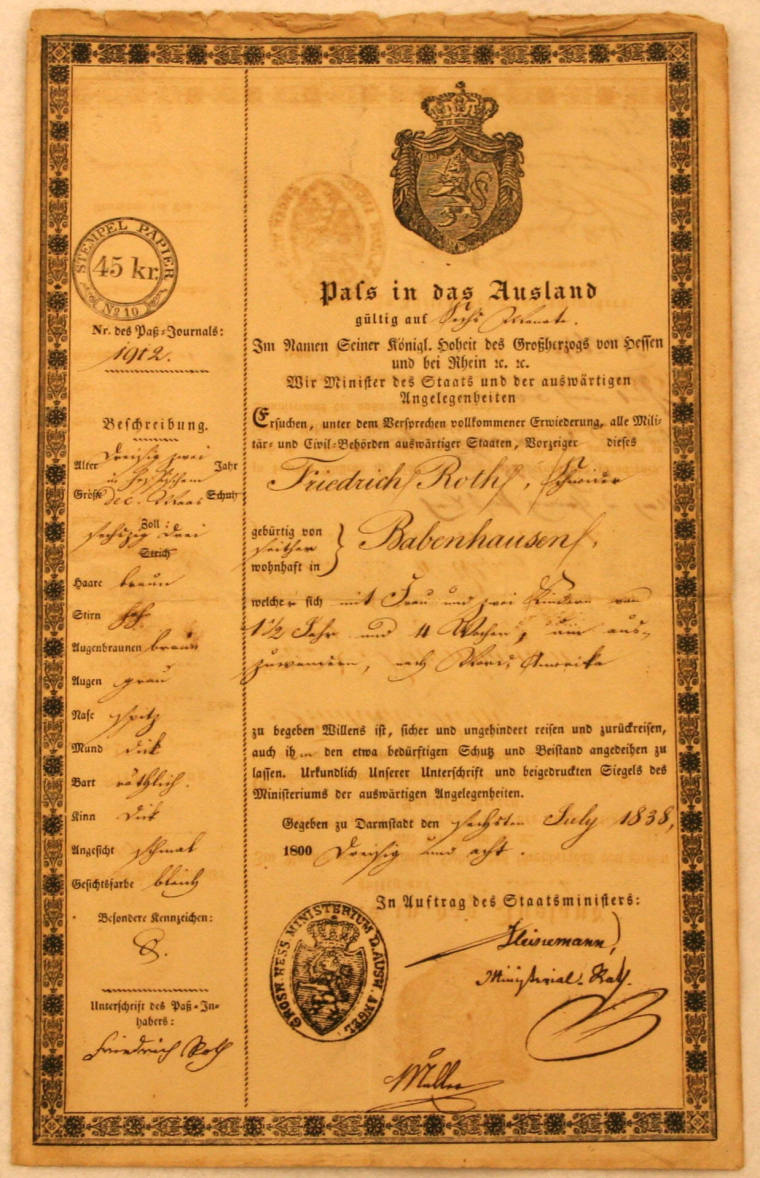 STEMPEL PAPIER
45 kr.
No 10
Nr. des Paß-Journals:
1912.
Beschreibung.
Alter Dreisig zwei Jahr
Größe dec. Maas Schuh
sechszig drei Zoll:
Strich
Haare braun
Stirn
Augenbraunen braun
Augen grau
Nase spitz
Mund dick
Bart röthlich.
Kinn dick
Angesicht schmal
Gesichtsfarbe bleich
Besondere Kennzeichen:
Unterschrift des Paß-In-
habers:
Friedrich Roth
Pass in das Ausland
gültig auf Sechs Monate.
Im Namen Seiner Königl. Hoheit des Großherzogs von Hessen
und bei Rhein ꝛc. ꝛc.
Wir Minister des Staats und der auswärtigen
Angelegenheiten
Ersuchen, unter dem Versprechen vollkommener Erwiederung, alle Mili-
tär- und Civil-Behörden auswärtiger Staaten, Vorzeiger dieses
Friedrich Roth, Schneider
gebürtig von
seither
wohnhaft in
Babenhausen,
welcher sich mit Frau und zwei Kindern von
1 1/2 Jahr und 4 Wochen, um aus-
zuwandern, nach Nord Amerika
zu begeben Willens ist, sicher und ungehindert reisen und zurückreisen,
auch ihm den etwa bedürftigen Schutz und Beistand angedeihen zu
lassen. Urkundlich Unserer Unterschrift und beigedruckten Siegels des
Ministeriums der auswärtigen Angelegenheiten.
Gegeben zu Darmstadt den sechsten July 1838,
1800 Dreisig und acht.
In Auftrag des Staatsministers:
Ministerial-Rath.
GROSH. HESS. MINISTERIUM D. AUSW. ANGEL.
Müller